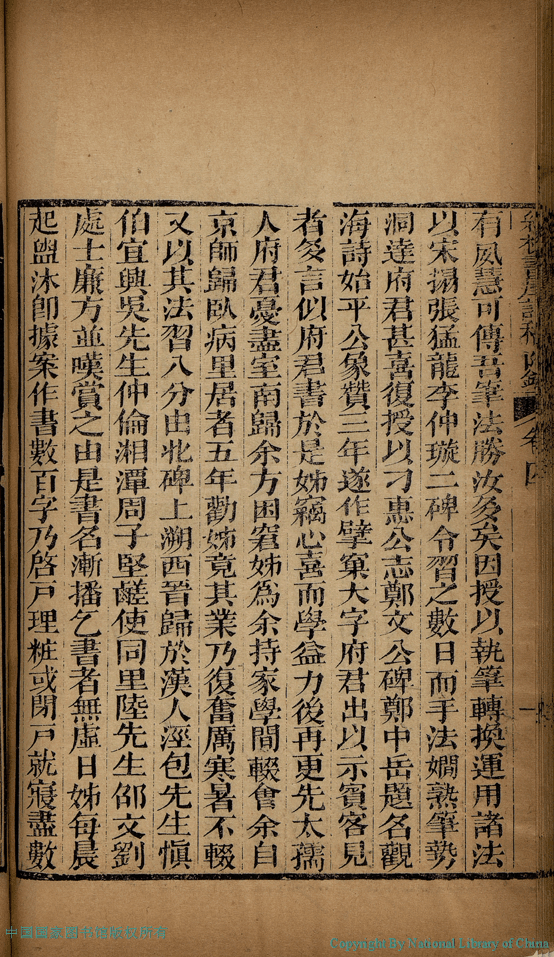 有夙慧可傳吾筆法勝汝多矣因授以執筆轉換運用諸法
以宋搨張猛龍李仲璇二碑令習之數日而手法嫺熟筆勢
洞達府君甚喜復授以刁惠公志鄭文公碑鄭中岳題名觀
海詩始平公象贊三年遂作擘窠大字府君出以示賓客見
者多言似府君書於是姊竊心喜而學益力後再更先太孺
人府君憂盡室南歸余方困窘姊爲余持家學間輟會余自
京師歸臥病里居者五年勸姊竟其業乃復奮厲寒暑不輟
又以其法習八分由北碑上溯西晉歸於漢人涇包先生愼
伯宜興吳先生仲倫湘潭周子堅鹺使同里陸先生邵文劉
處士廉方並嘆賞之由是書名漸播乞書者無虛日姊每晨
起盥沐卽據案作書數百字乃啓戶理粧或閉戶就寢盡數
卷四
一
中国国家图书馆版权所有
Copyright By National Library of China